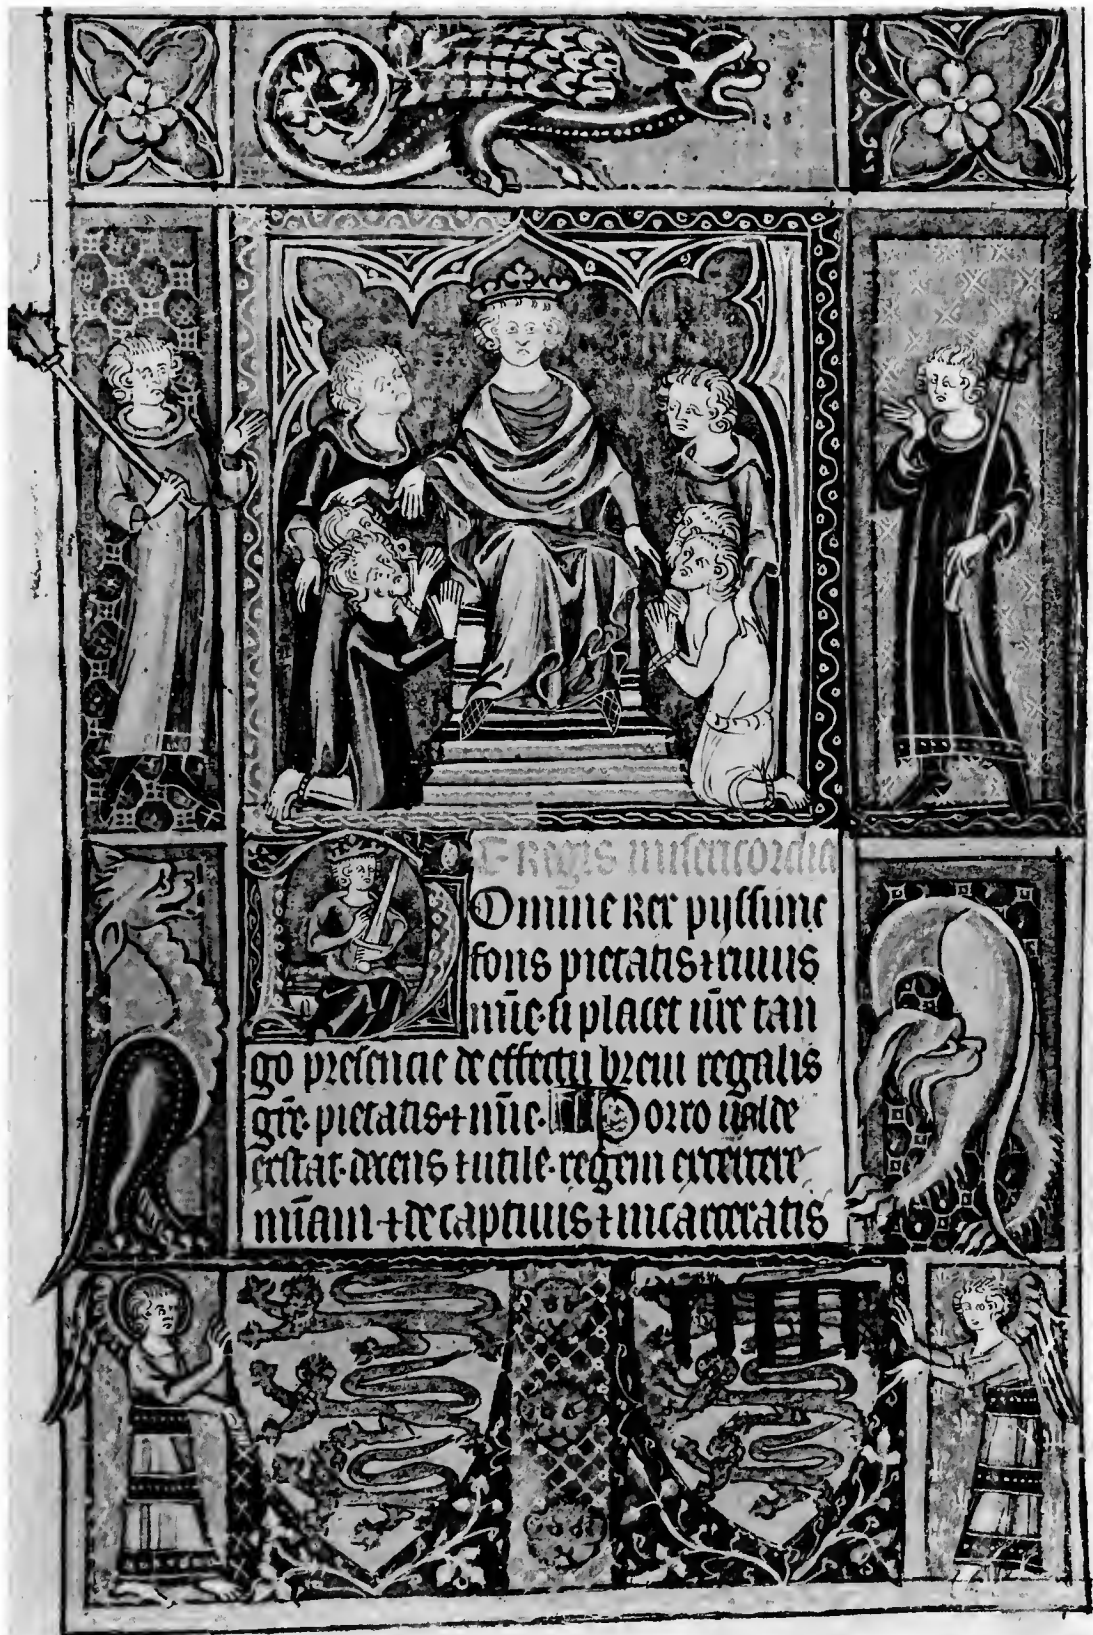 De Regis misericordia
Domine Rex pijssime
fons pietatis ⁊ riuus
mīe· si placet iūre tan
go presencie de effectu breui regalis
grē· pietatis ⁊ mīe· Porro ualde
exstat· decens ⁊ utile· regem exercere
mīam ⁊ de captiuis ⁊ incarceratis